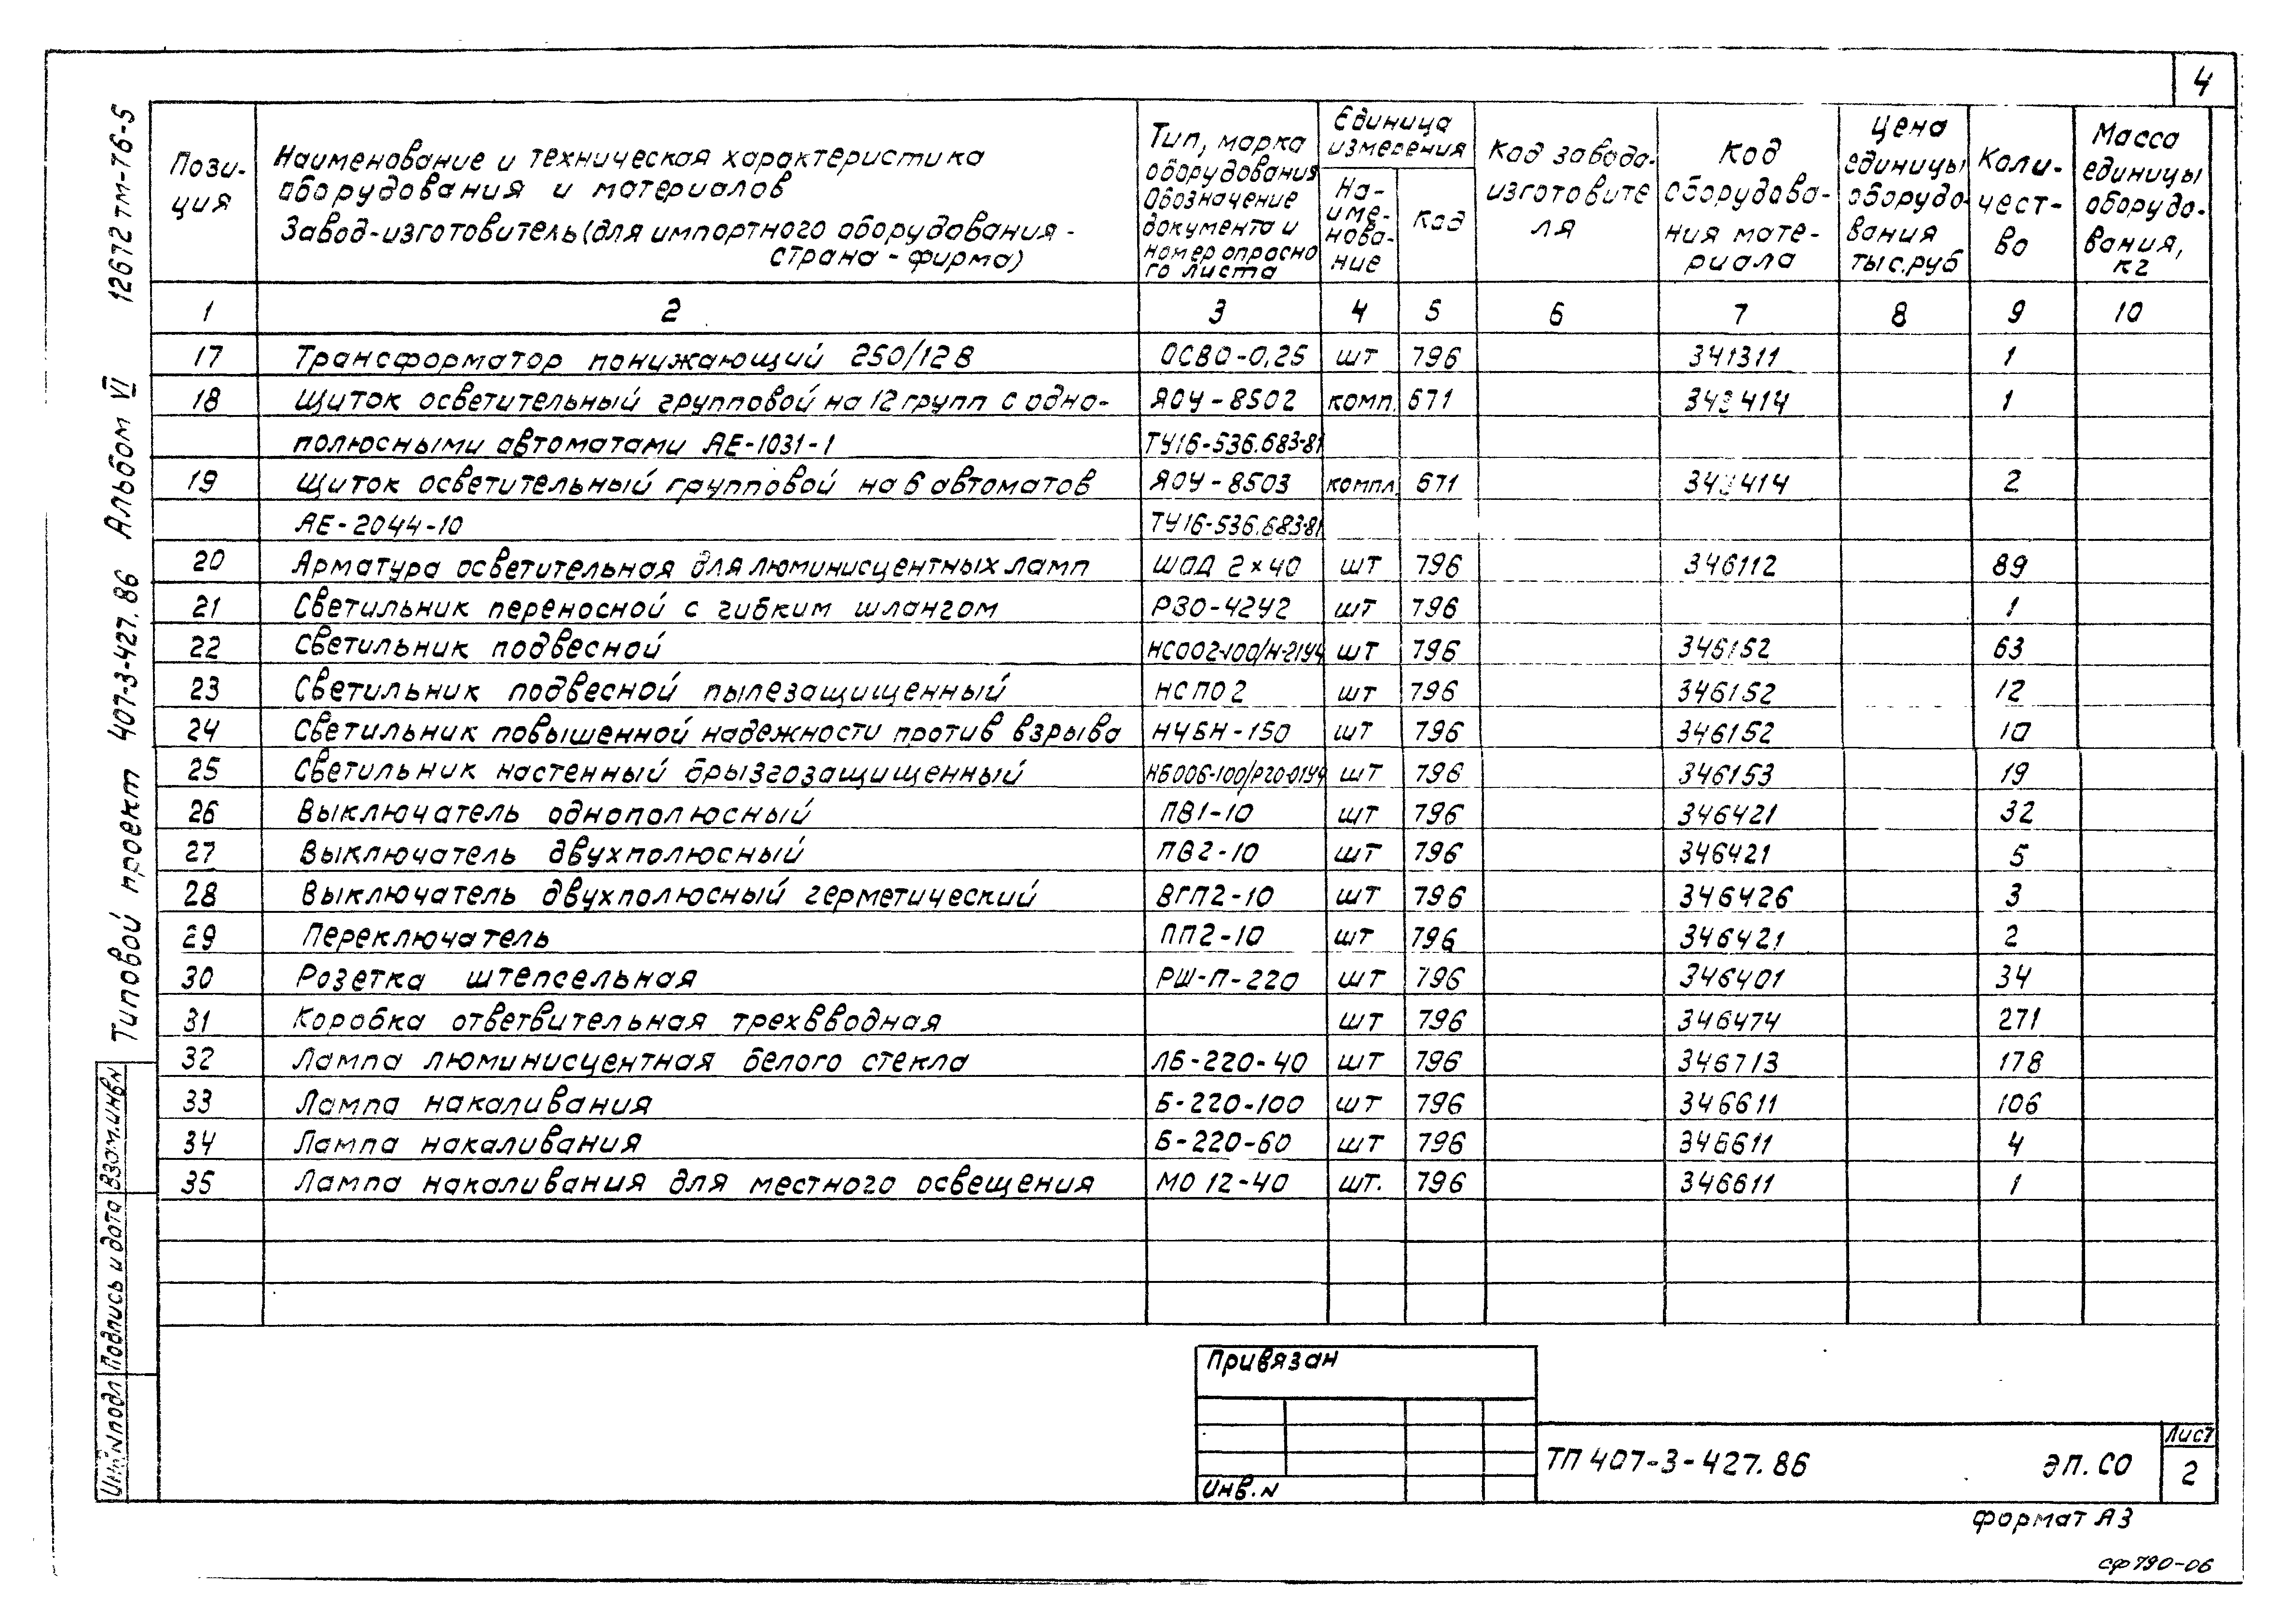 4
12672 тм-т6-5
Типовой проект 407-3-427.86 Альбом VI
Пози-
ция
Наименование и техническая характеристика
оборудования и материалов
Завод-изготовитель (для импортного оборудования -
страна - фирма)
Тип, марка
оборудования
Обозначение
документа и
номер опросно
го листа
Единица
измерения
На-
име-
нова-
ние
Код
Код завода-
изготовите
ля
Код
оборудова-
ния мате-
риала
Цена
единицы
оборудо-
вания
тыс.руб
Коли-
чест-
во
Масса
единицы
оборудо-
вания,
кг
1 2 3 4 5 6 7 8 9 10
17 Трансформатор понижающий 250/12В ОСВО-0,25 шт 796 341311 1
18 Щиток осветительный групповой на 12 групп с одно- ЯОУ-8502 комп. 671 343414 1
полюсными автоматами АЕ-1031-1 ТУ16-536.683-81
19 Щиток осветительный групповой на 6 автоматов ЯОУ-8503 компл. 671 343414 2
АЕ-2044-10 ТУ16-536.683-81
20 Арматура осветительная для люминисцентных ламп ШОД 2×40 шт 796 346112 89
21 Светильник переносной с гибким шлангом РВО-42У2 шт 796 1
22 Светильник подвесной НСО02-100/Н-21У4 шт 796 346152 63
23 Светильник подвесной пылезащищенный НСП02 шт 796 346152 12
24 Светильник повышенной надежности против взрыва Н4БН-150 шт 796 346152 10
25 Светильник настенный брызгозащищенный НБ006-100/Р20-01У4 шт 796 346153 19
26 Выключатель однополюсный ПВ1-10 шт 796 346421 32
27 Выключатель двухполюсный ПВ2-10 шт 796 346421 5
28 Выключатель двухполюсный герметический ВГП2-10 шт 796 346426 3
29 Переключатель ПП2-10 шт 796 346421 2
30 Розетка штепсельная РШ-П-220 шт 796 346401 34
31 Коробка ответвительная трехвводная шт 796 346474 271
32 Лампа люминисцентная белого стекла ЛБ-220-40 шт 796 346713 178
33 Лампа накаливания Б-220-100 шт 796 346611 106
34 Лампа накаливания Б-220-60 шт 796 346611 4
35 Лампа накаливания для местного освещения МО 12-40 шт. 796 346611 1
Инв.N подл Подпись и дата Взам.инв.N
Привязан
Инв.N
ТП 407-3-427.86 ЭП.СО
Лист
2
формат А3
сф 790-06